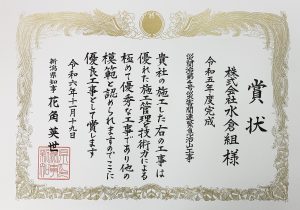 賞状
株式会社水倉組 様
令和五年度完成
貴社の施工した右の工事は
優れた施工管理技術力による
極めて優秀な工事であり他の
模範と認められますのでここに
優良工事として賞します
令和六年十一月十九日
新潟県知事 花角英世